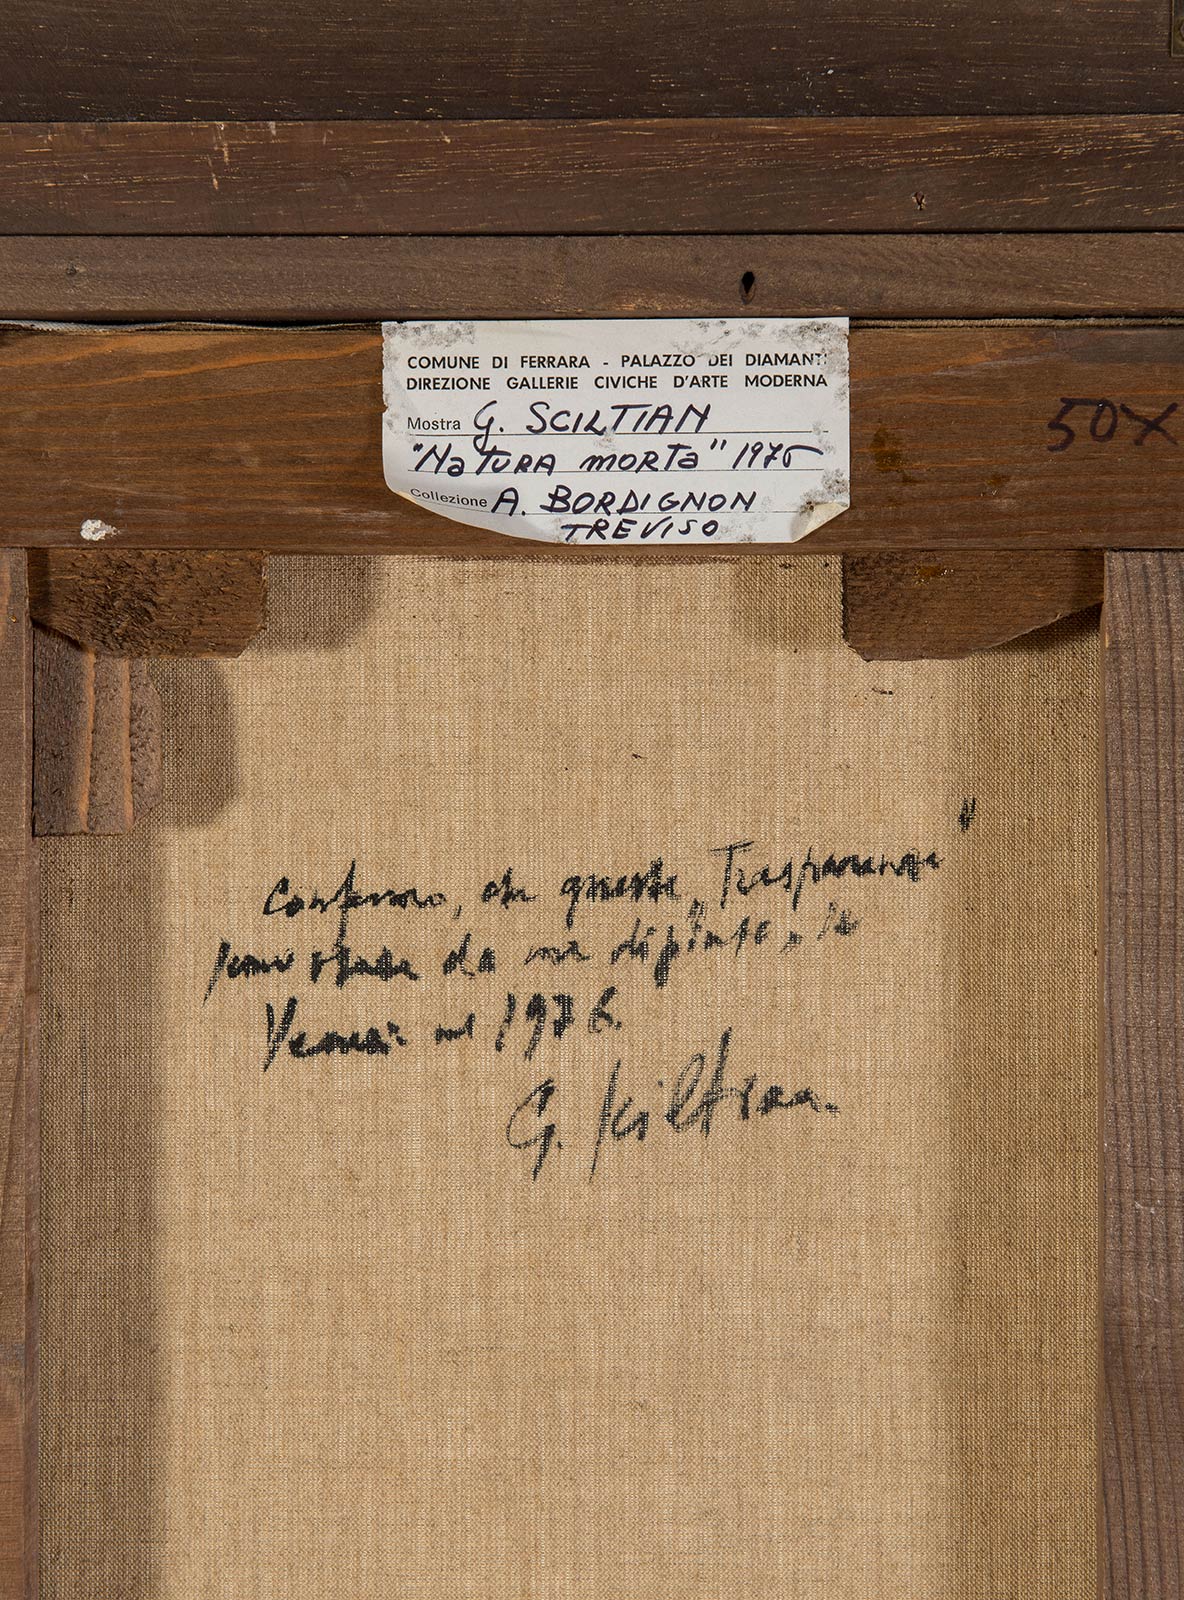 COMUNE DI FERRARA - PALAZZO DEI DIAMANTI
DIREZIONE GALLERIE CIVICHE D'ARTE MODERNA
Mostra G. SCILTIAN
"NaTURA MORTa" 1975
Collezione A. BORDIGNON
TREVISO
50X
Confermo, che queste „Trasparenze"
sono state da me dipinte, a
Venezia nel 1976.
G. Sciltian.